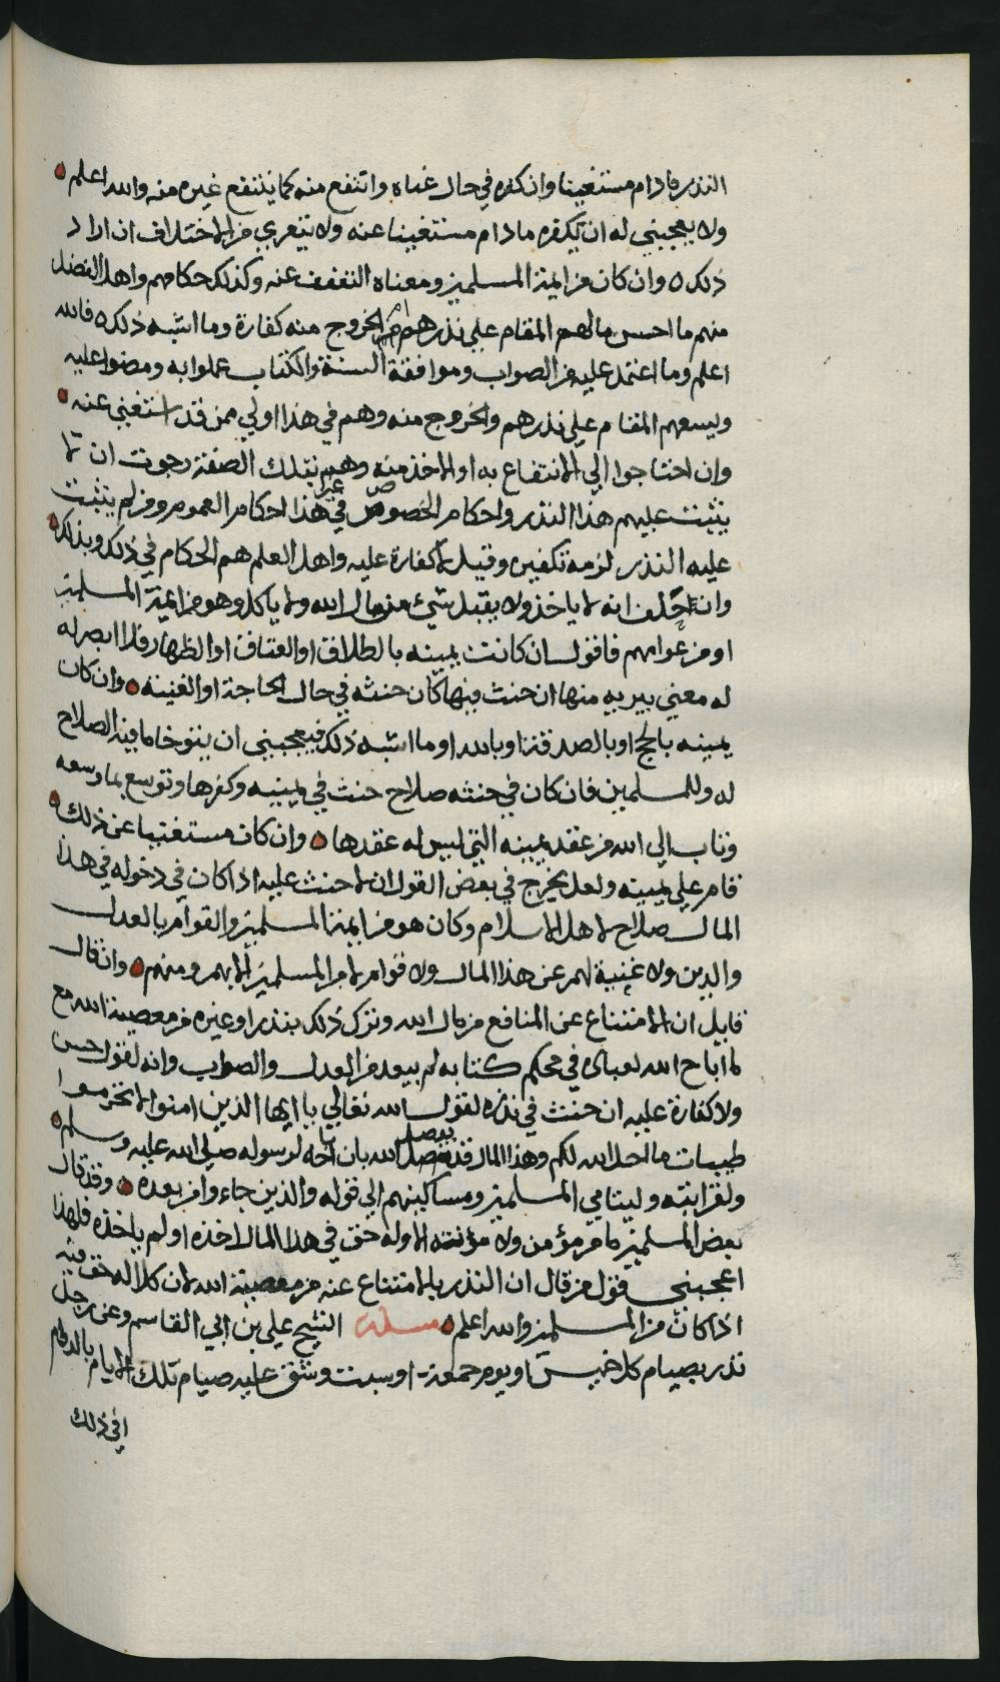 النذر ما دام مستغنيا وان كفره في حال غناه وانتفع منه كما ينتفع غيره منه والله اعلم
ولا يعجبني له ان يكفره ما دام مستغنيا عنه ولا يتعرى من الاختلاف ان اراد
ذلك وان كان من ايمة المسلمين ومعناه التعفف عنه وكذلك حكامهم واهل الفضل
منهم ما احسن مالهم المقام على نذرهم ام الخروج منه كفارة وما اشبه ذلك فالله
اعلم وما اعتمد عليه من الصواب وموافقة السنة والكتاب عملوا به ومضوا عليه
وليسعهم المقام على نذرهم والخروج منه وهم في هذا اولى ممن قد استغنى عنه
وان احتاجوا الى الانتفاع به او الاخذ منه وهم بتلك الصفة رجوت ان لا
يثبت عليهم هذا النذر واحكام الخصوص في هذا غير احكام العموم ومن لم يثبت
عليه النذر لزمه تكفيره وقيل لا كفارة عليه واهل العلم هم الحكام في ذلك وبذلك
وان حلف انه لا ياخذ ولا يقبل شيء من مال الله ولا ياكل وهو من ايمة المسلمين
او من عوامهم فاقول ان كانت يمينه بالطلاق او العتاق او الظهار فلا ابصر له
له معنى يبريه منها ان حنث فيها كان حنثه في حال الحاجة او الغنية وان كان
يمينه بالحج او بالصدقة او بالله او ما اشبه ذلك فيعجبني ان يتوخا ما فيه الصلاح
له وللمسلمين فان كان في حنثه صلاح حنث في يمينه وكفرها وتوسع بما وسعه
وتاب الى الله من عقد يمينه التي ليس له عقدها وان كان مستغنيا عن ذلك
قام على يمينه ولعل يخرج في بعض القول ان لا حنث عليه اذا كان في دخوله في هذا
المال صلاح لاهل الاسلام وكان هو من ايمة المسلمين والقوام بالعدل
والدين ولا غنية لهم عن هذا المال ولا قوام لامر المسلمين الا بهم ومنهم وان قال
قايل ان الامتناع عن المنافع من مال الله وترك ذلك بنذر او غيره من معصية الله مع
ما اباح الله لعباده في محكم كتابه لم يبعد من العدل والصواب وانه لقول حسن
ولا كفارة عليه ان حنث في نذره لقول الله تعالى يا ايها الذين امنوا لا تحرموا
طيبات ما احل الله لكم وهذا المال قد فصل الله بان احله لرسوله صلى الله عليه وسلم
ولقرابته وليتامى المسلمين ومساكينهم الى قوله والذين جاءوا من بعده وقد قال
بعض المسلمين ما من مؤمن ولا مؤمنة الا وله حق في هذا المال اخذه او لم ياخذه فلهذا
اعجبني قول من قال ان النذر بالامتناع عنه من معصية الله لان كلا له حق فيه
اذا كان من المسلمين والله اعلم مسلة الشيخ علي بن ابي القاسم وعن رجل
نذر بصيام كل خميس او يوم جمعة او سبت وشق عليه صيام تلك الايام
ذلك